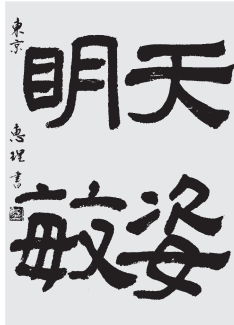 天姿
明敏
東京 惠理書